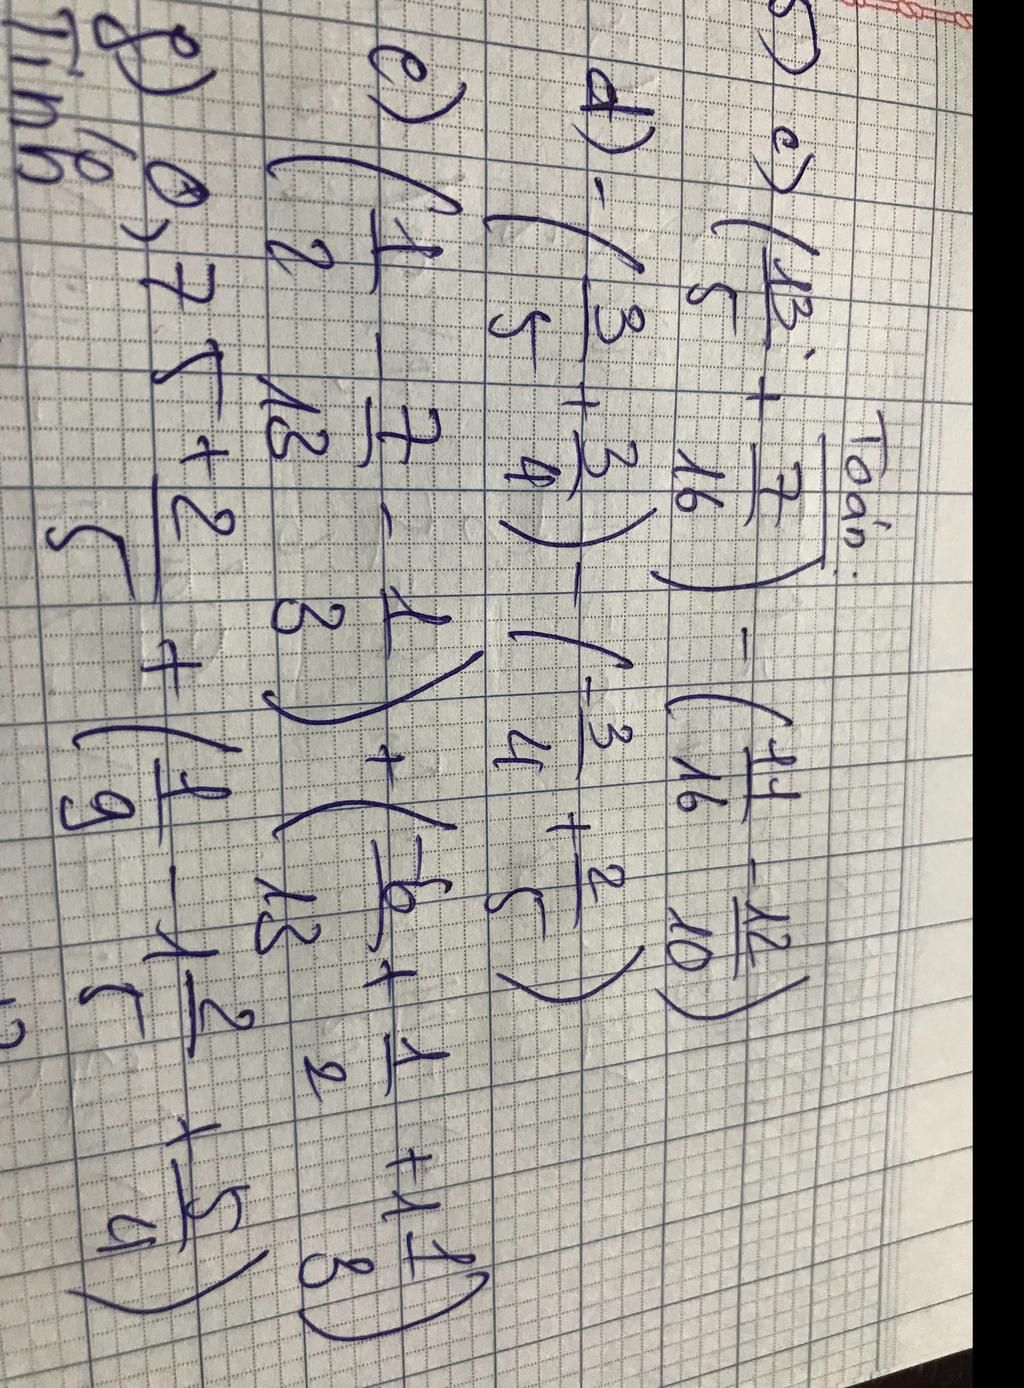 Toán:
5) c) (13/5 + 7/16) - (11/16 - 12/10)
d) - (3/5 + 3/4) - (-3/4 + 2/5)
e) (1/2 - 7/13 - 1/3) + (-6/13 + 1/2 + 1 1/3)
g) 0,75 + 2/5 + (1/9 - 1 2/5 + 5/4)
Tính